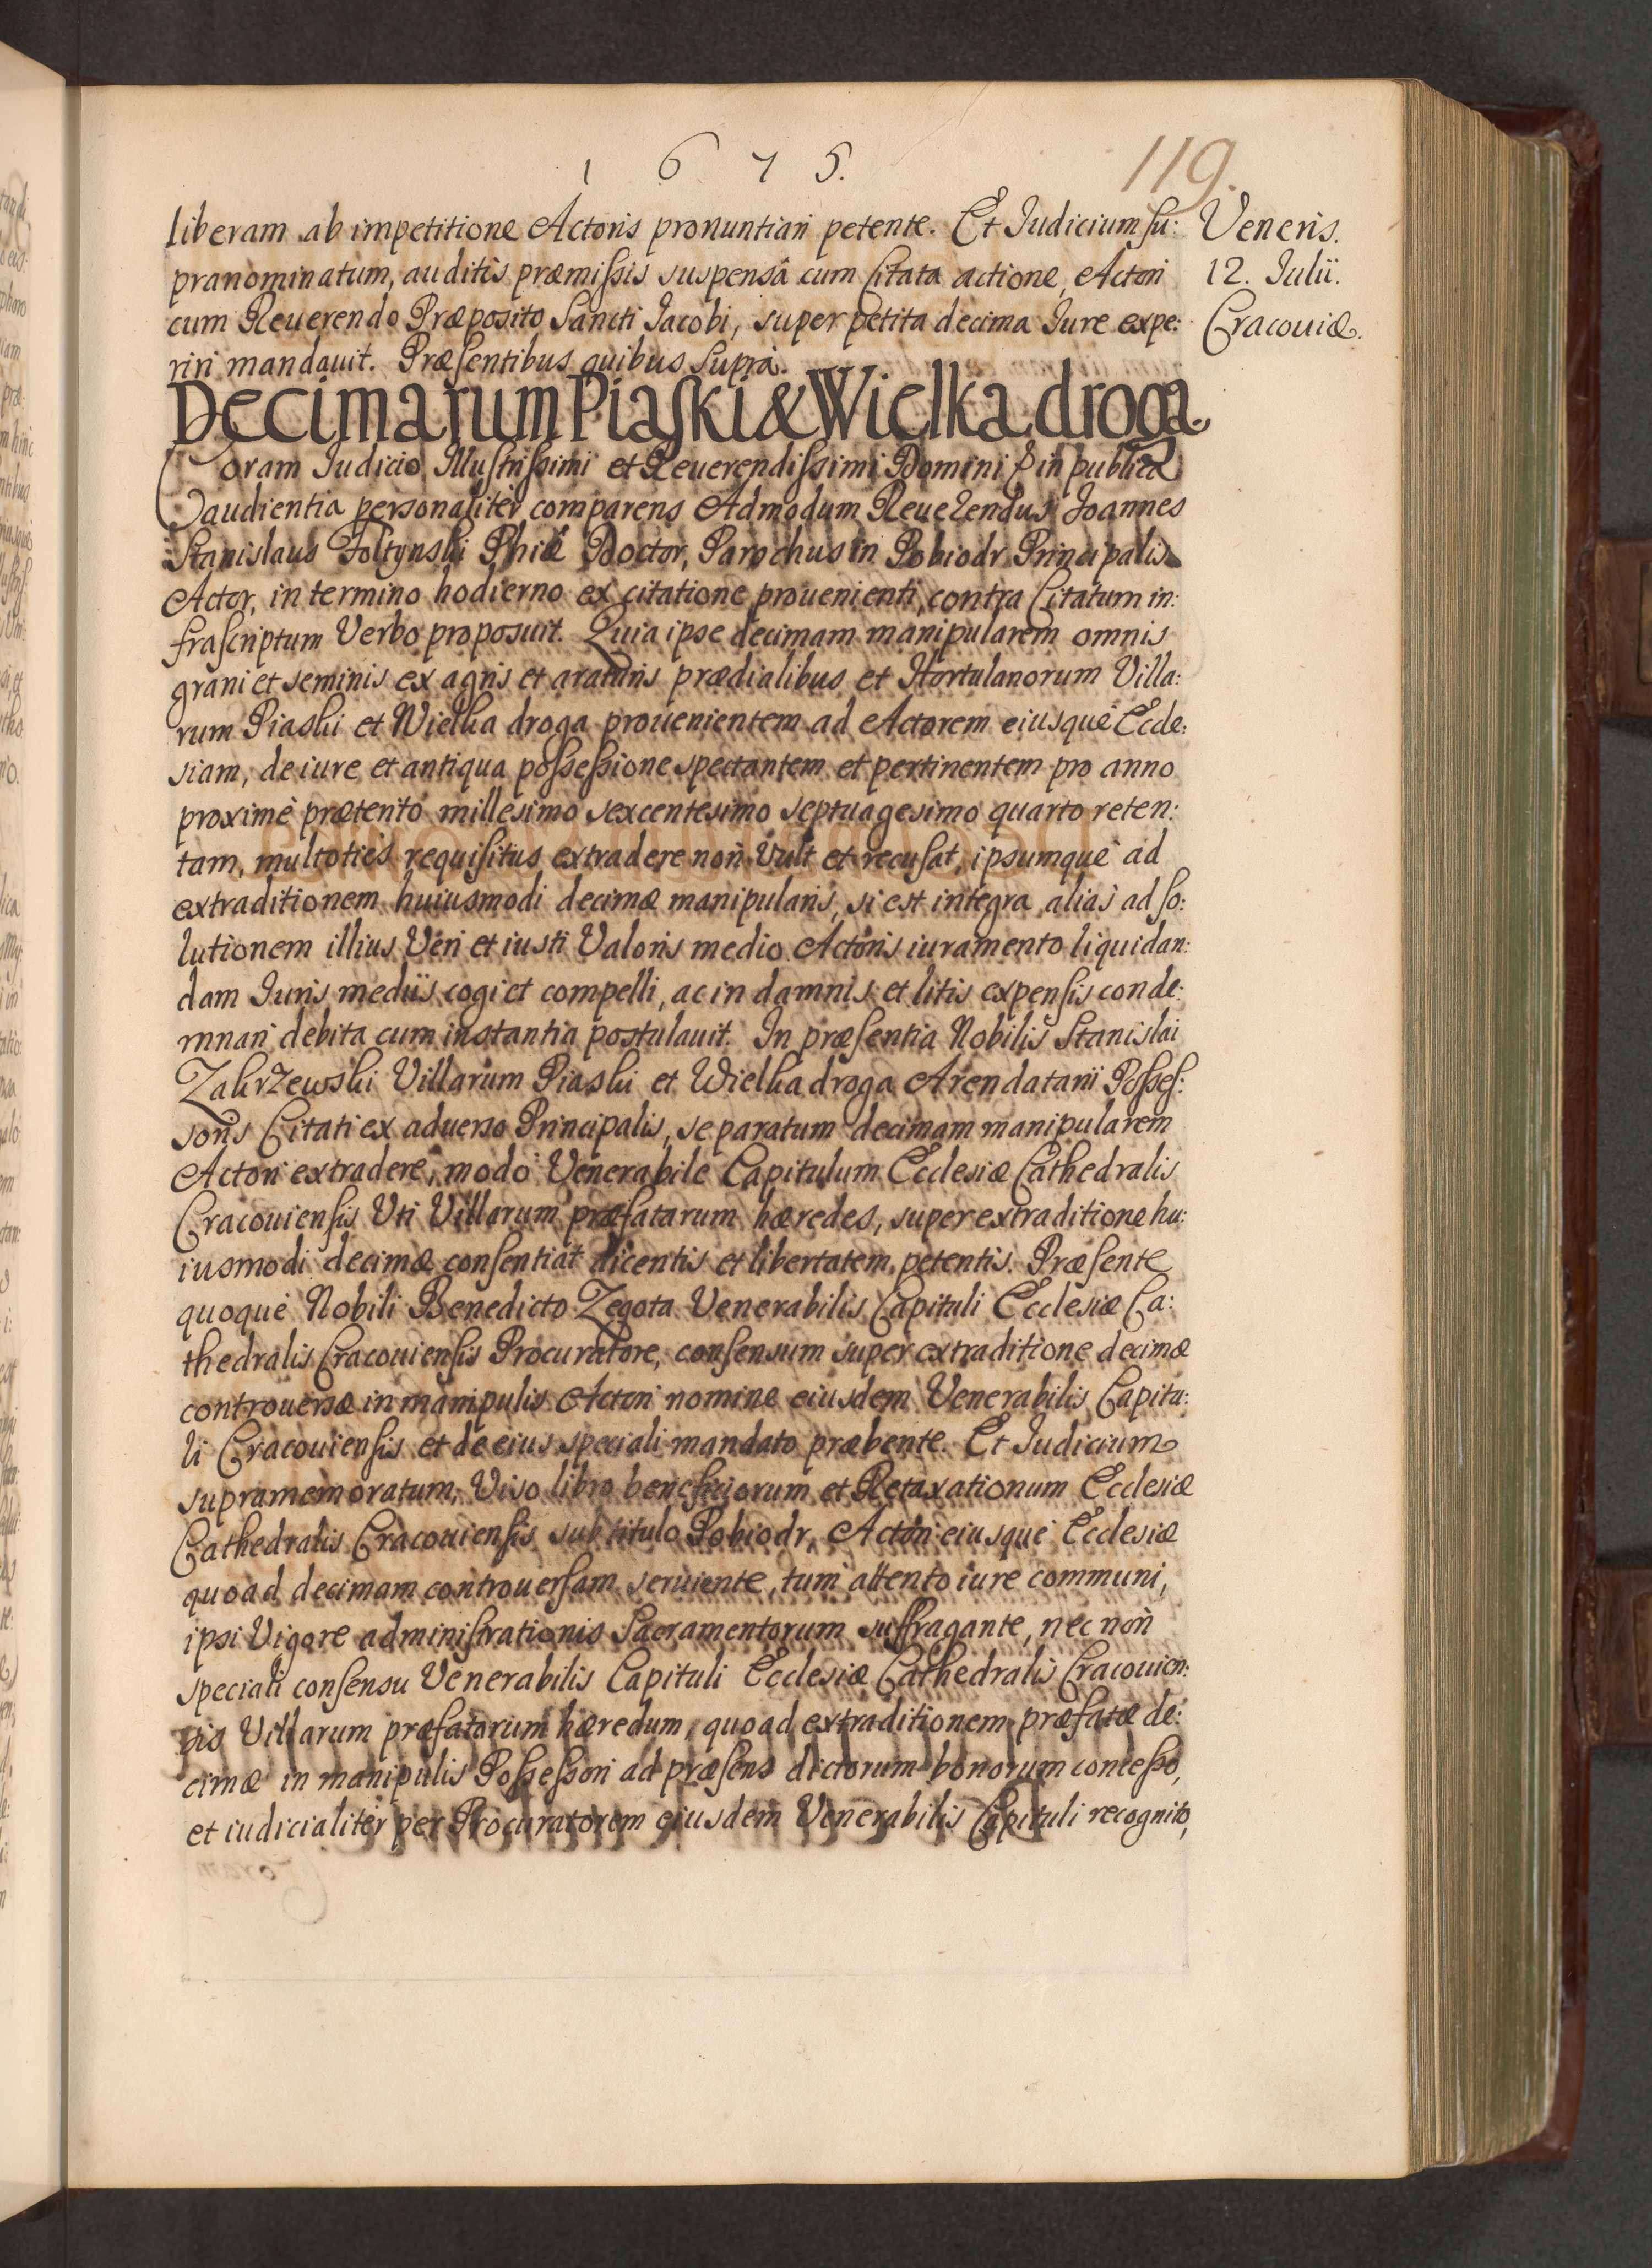 1675.
119.
liberam ab impetitione Actoris pronuntiari petente. Et Judicium su:
Veneris.
pranominatum, auditis præmissis suspensâ cum Citata actione, Actori
12. Julii.
cum Reuerendo Præposito Sancti Jacobi, super petita decima Jure expe:
Cracouiæ.
riri mandauit. Præsentibus quibus supra.
Decimarum Piaski & Wielka droga
Coram Judicio Illustrissimi et Reuerendissimi Domini in publica
audientia personaliter comparens Admodum Reuerendus Joannes
Stanislaus Foltynski Phiæ Doctor, Parochus in Pobiodr Principalis
Actor, in termino hodierno ex citatione prouenienti, contra Citatum in:
frascriptum Verbo proposuit. Quia ipse decimam manipularem omnis
grani et seminis ex agris et araturis prædialibus et Hortulanorum Villa:
rum Piaski et Wielka droga prouenientem ad Actorem eiusque Eccle:
siam, de iure et antiqua possessione spectantem et pertinentem pro anno
proximè prætento millesimo sexcentesimo septuagesimo quarto reten:
tam, multoties requisitus extradere non Vult et recusat, ipsumque ad
extraditionem huiusmodi decimæ manipularis, si est integra alias ad so:
lutionem illius Veri et iusti Valoris medio Actoris iuramento liquidan:
dam Juris mediis cogi et compelli, ac in damnis et litis expensis conde:
mnari debita cum instantia postulauit. In præsentia Nobilis Stanislai
Zakrzewski Villarum Piaski et Wielka droga Arendatarii Posses:
soris Citati ex aduerso Principalis, se paratum decimam manipularem
Actori extradere, modo Venerabile Capitulum Ecclesiæ Cathedralis
Cracouiensis Uti Villarum præfatarum hæredes, super extraditione hu:
iusmodi decimæ consentiat dicentis et libertatem petentis. Præsente
quoque Nobili Benedicto Zegota Venerabilis Capituli Ecclesiæ Ca:
thedralis Cracouiensis Procuratore, consensum super extraditione decimæ
controuersæ in manipulis Actori nomine eiusdem Venerabilis Capitu:
li Cracouiensis et de eius speciali mandato præbente. Et Judicium
supramemoratum, Viso libro beneficiorum et Retaxationum Ecclesiæ
Cathedralis Cracouiensis sub titulo Pobiodr, Actori eiusque Ecclesiæ
quoad decimam controuersam seruiente, tum attento iure communi,
ipsi Vigore administrationis Sacramentorum suffragante, nec non
speciali consensu Venerabilis Capituli Ecclesiæ Cathedralis Cracouien:
sis Villarum præfatarum hæredum, quoad extraditionem præfatæ de:
cimæ in manipulis Possessori ad præsens dictorum bonorum concesso,
et iudicialiter per Procuratorem eiusdem Venerabilis Capituli recognito,